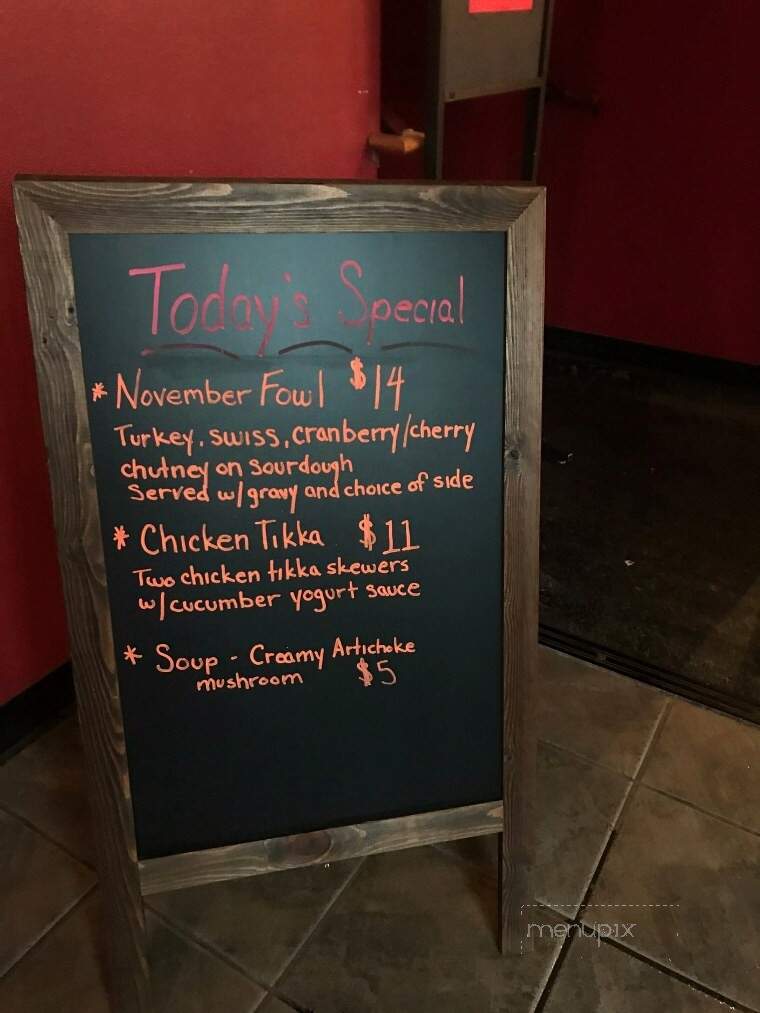 Today's Special
* November Fowl $14
Turkey, swiss, cranberry/cherry
chutney on sourdough
Served w/gravy and choice of side
* Chicken Tikka $11
Two chicken tikka skewers
w/cucumber yogurt sauce
* Soup - Creamy Artichoke
mushroom $5
menupix